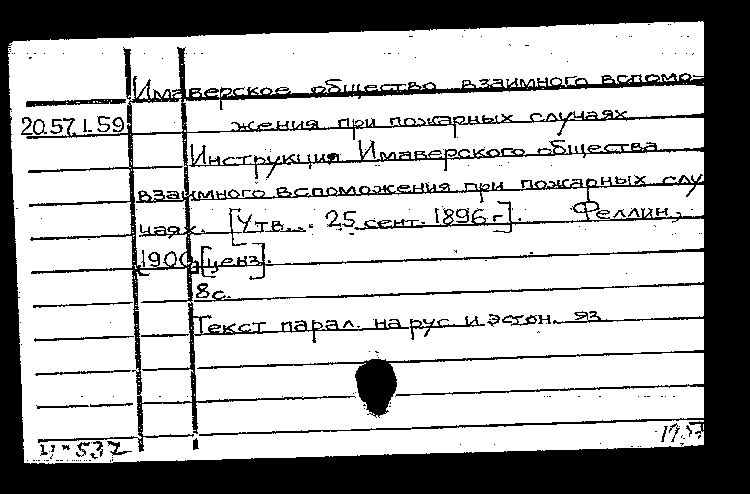 Имаверское общество взаимного вспомо-
20.57.1.59 жения при пожарных случаях
Инструкция Имаверского общества
взаимного вспоможения при пожарных слу
чаях. [Утв... 25 сент. 1896 г]. Феллин,
1900, [ценз].
8с.
Текст парал. на рус. и эстон. яз
4-537